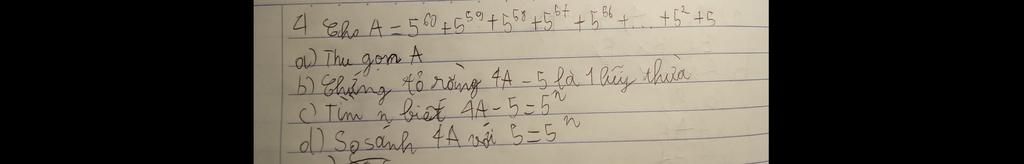 4 Cho A = 5^60 + 5^59 + 5^58 + 5^57 + 5^56 + ... + 5^2 + 5
a) Thu gọn A
b) Chứng tỏ rằng 4A - 5 là 1 lũy thừa
c) Tìm n biết 4A - 5 = 5^n
d) So sánh 4A với 5 = 5^n